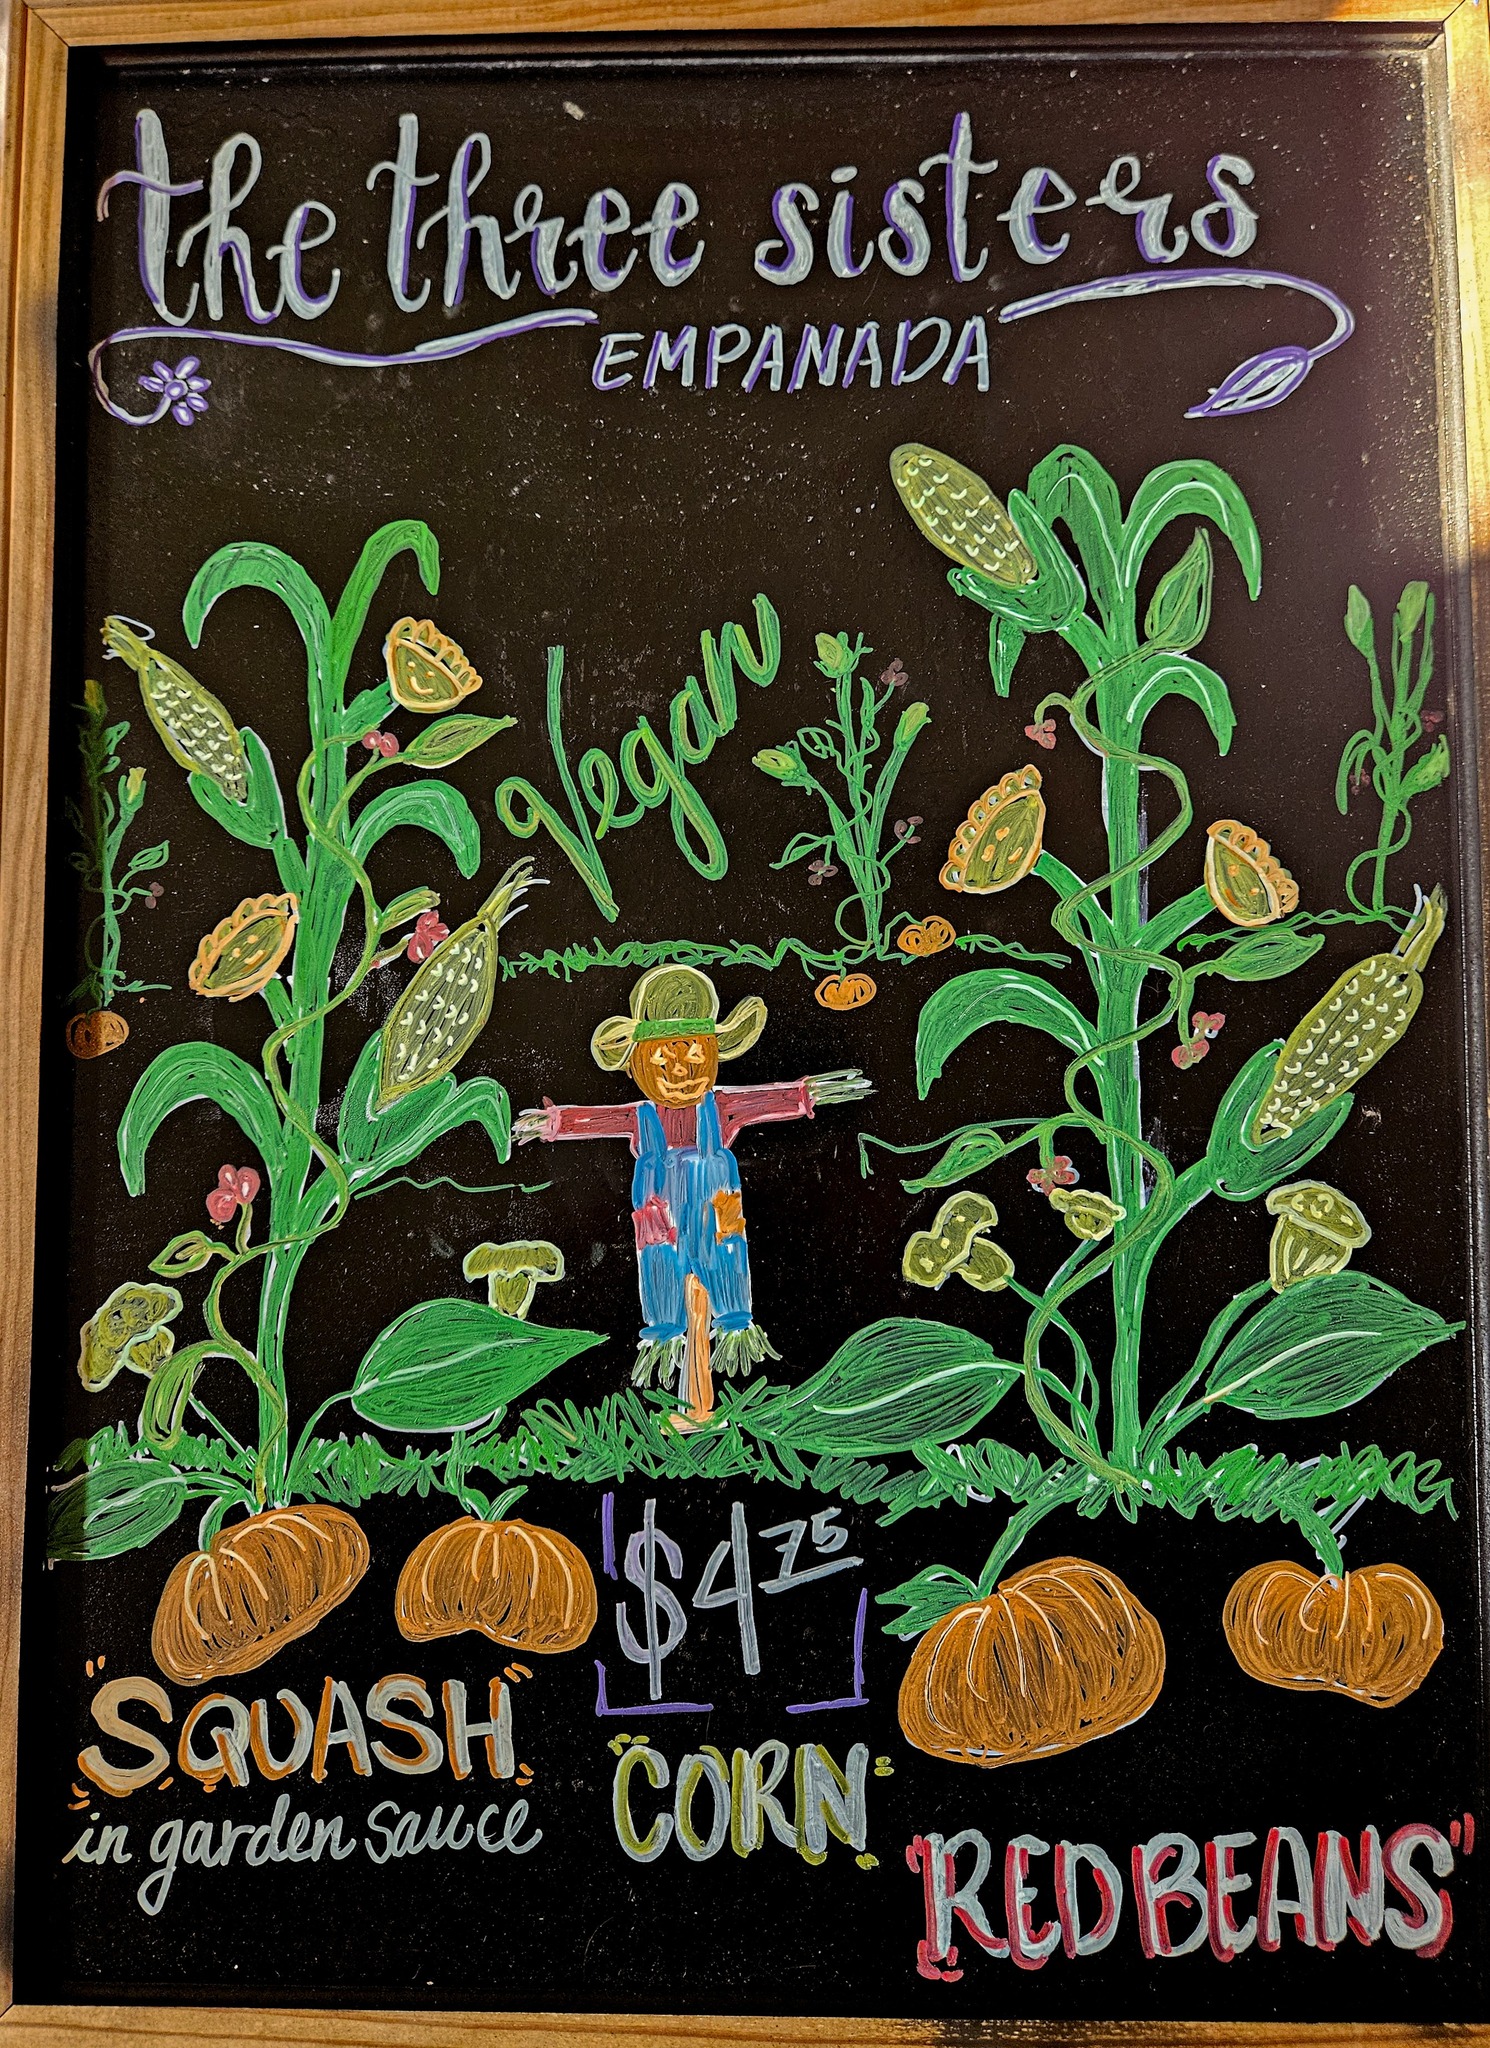 the three sisters
EMPANADA
Vegan
$4 75
"SQUASH"
in garden sauce
"CORN"
"RED BEANS"